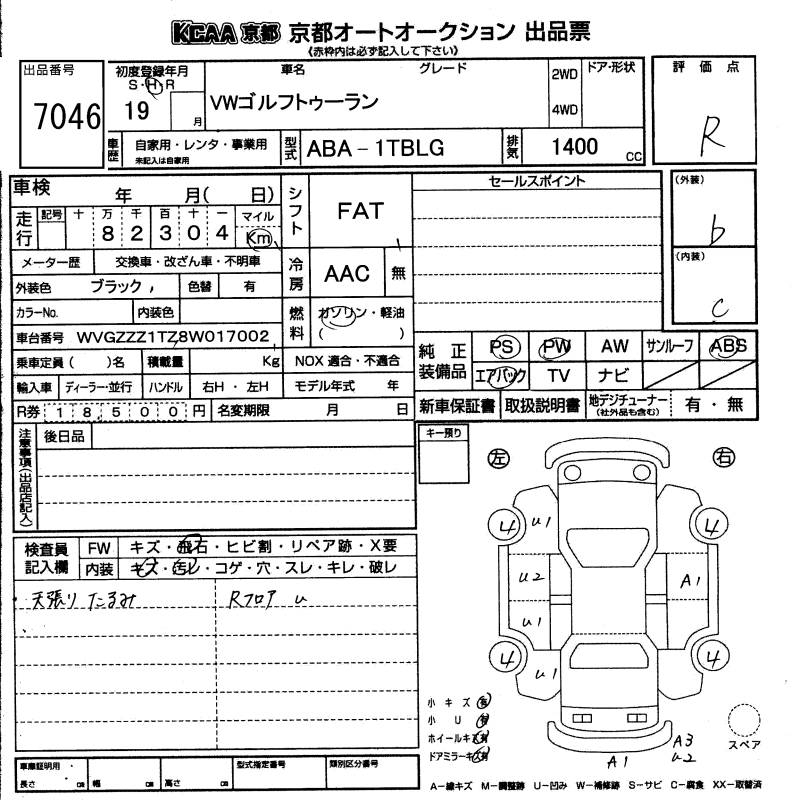 KCAA 京都 京都オートオークション 出品票
《赤枠内は必ず記入して下さい》
出品番号 初度登録年月 車名 グレード 2WD ドア・形状 評価点
S・H・R
7046 19 月 VWゴルフトゥーラン 4WD R
車歴 自家用・レンタ・事業用 型式 ABA-1TBLG 排気 1400 cc
未記入は自家用
車検 年 月( 日) シフト FAT セールスポイント (外装)
走行 記号 十 万 千 百 十 一 マイル
8 2 3 0 4 Km b
メーター歴 交換車・改ざん車・不明車 冷房 AAC 無 (内装)
外装色 ブラック, 色替 有 c
カラーNo. 内装色 燃料 ガソリン・軽油
( )
車台番号 WVGZZZ1TZ8W017002 純正装備品 PS PW AW サンルーフ ABS
乗車定員( )名 積載量 Kg NOX 適合・不適合 エアバック TV ナビ
輸入車 ディーラー・並行 ハンドル 右H・左H モデル年式 年
R券 18,500円 名変期限 月 日 新車保証書 取扱説明書 地デジチューナー 有・無
(社外品も含む)
注意事項(出品店記入) 後日品 キー預り
左 右
4 U1 4
検査員記入欄 FW キズ・飛石・ヒビ割・リペア跡・X要
内装 キズ・汚レ・コゲ・穴・スレ・キレ・破レ
U2 A1
・天張り たるみ Rフロア U
U1
4 U1 4
小キズ 有
小U 有
ホイールキズ 有
ドアミラーキズ 有
スペア
A1 A3
U2
車庫証明用 型式指定番号 類別区分番号
長さ cm 幅 cm 高さ cm
A-線キズ M-調整跡 U-凹み W-補修跡 S-サビ C-腐食 XX-取替済